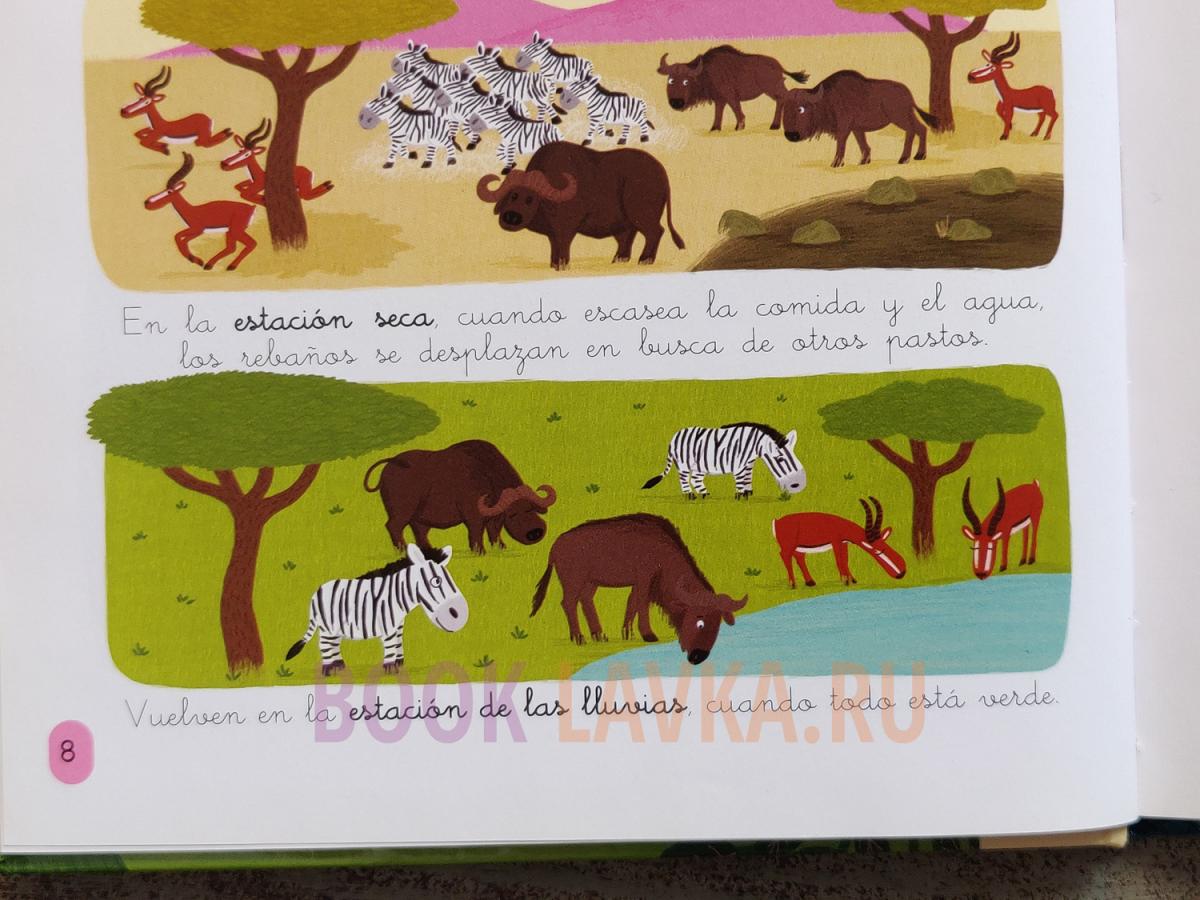 En la estación seca, cuando escasea la comida y el agua,
los rebaños se desplazan en busca de otros pastos.
Vuelven en la estación de las lluvias, cuando todo está verde.
BOOK-LAVKA.RU
8